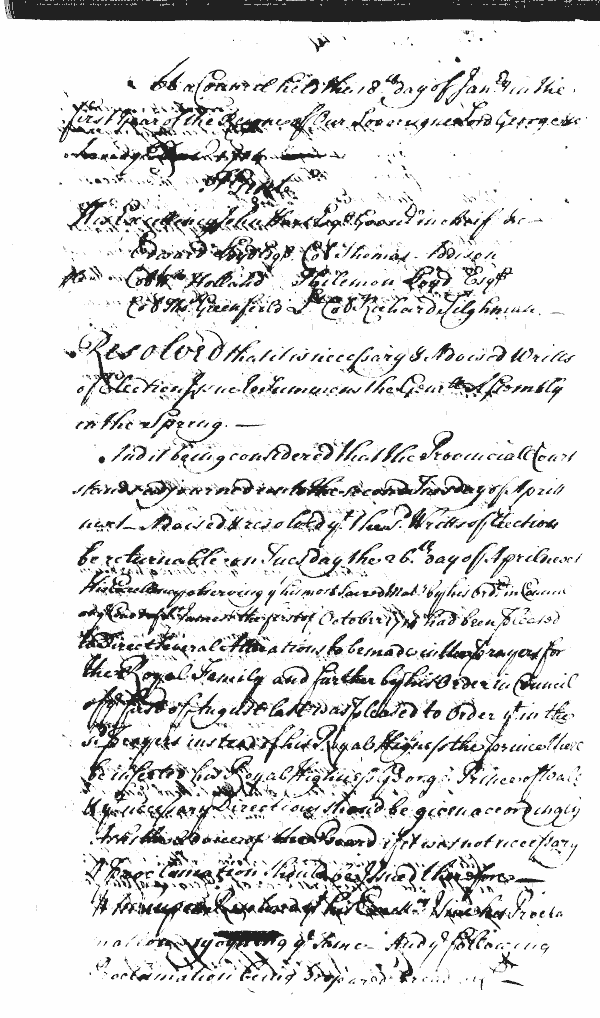 At a Council held the 18th day of Janry in the
first Year of the Reigne of Our Soveraigne Lord George &c
Present
His Excellency John Hart Esqr Governr in Cheif &c
Edward Lloyd Esqr Col Thomas Addison
Colo Wm Holland Philemon Loyd Esqrs
Col Thos Greenfeild Col Richard Tilghman
Resolved that it is necessary & Advised Writts
of Election Issue to Summons the Genrll Assembly
in the Spring. —
And it being considered that the Provincial Court
stands adjourned unto the second Tuesday of Aprill
next Advised & resolved yt the sd Writts of Election
be returnable on Tuesday the 26th day of April next
His Excellency observing yt his most Sacred Maty by his Ordr in Council
St James's the first of October 1714 had been pleased
to Direct several Alterations to be made in the Prayers for
the Royal Family and further by his Order in Council
of the first of August last was pleased to Order yt in the
sd Prayers instead of his Royal Highness the Prince there
be inserted his Royal Highness George Prince of Wales
& ye necessary Directions should be given accordingly
Asks the Advice of the Board if it was not necessary
A Proclamation should be Issued therefore —
Whereupon Resolved yt his Excellcy Issue his Procla
mation enjoyning ye Same And ye following
Proclamation being prepared & read